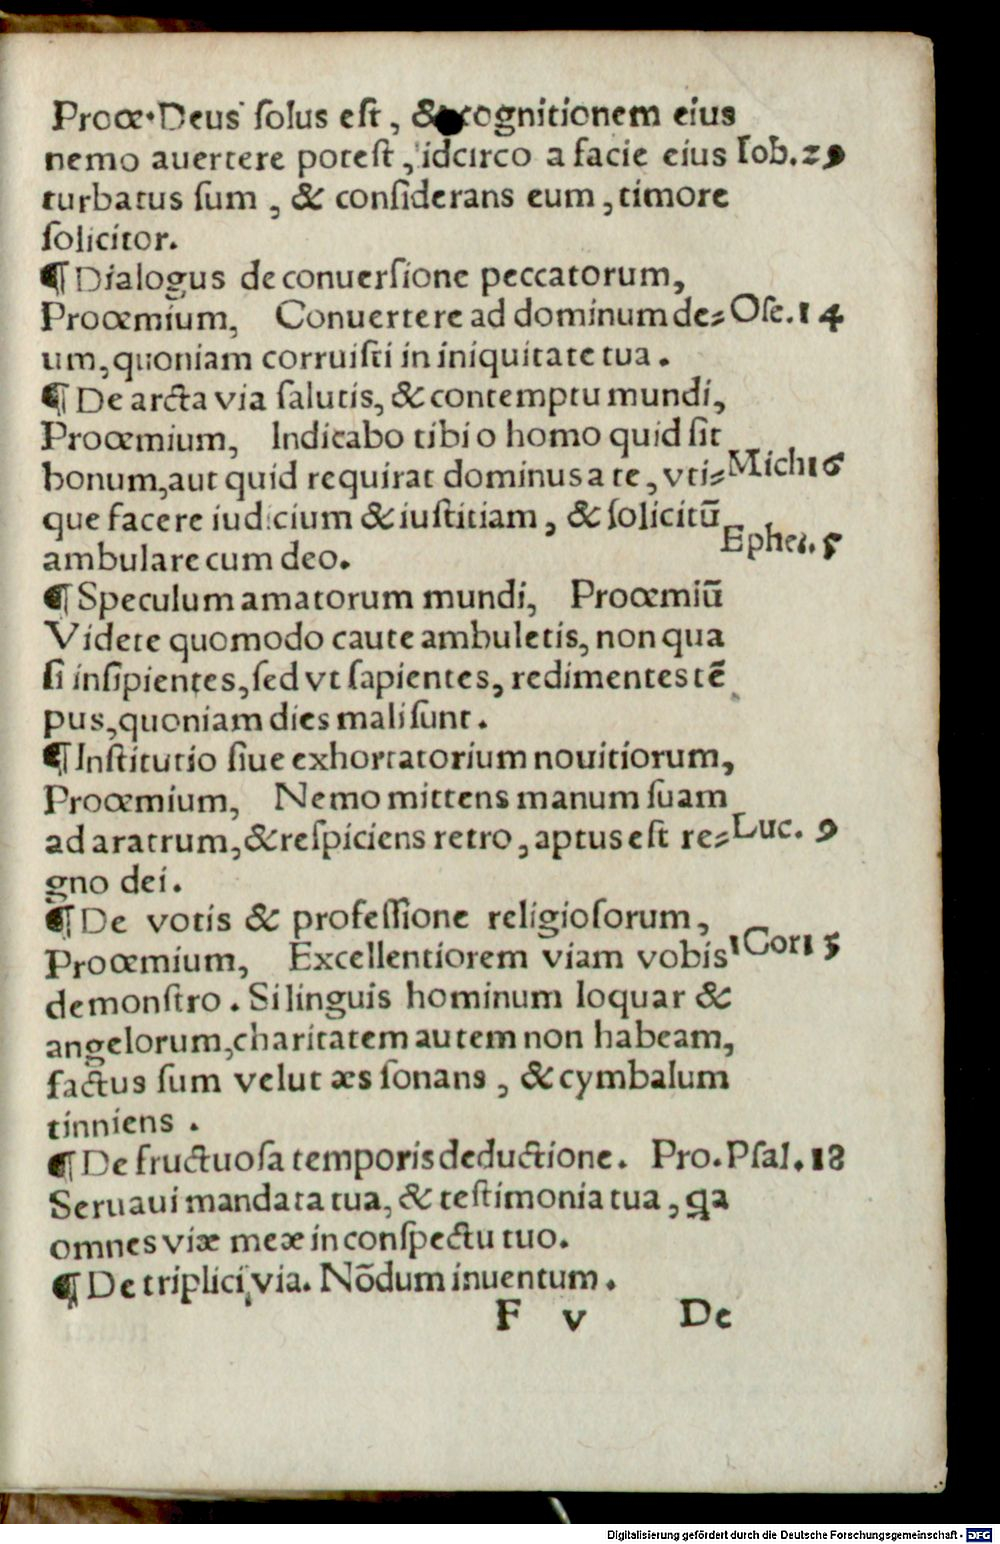 Proœ. Deus solus est, & cognitionem eius
nemo auertere potest, idcirco a facie eius Iob. 23
turbatus sum, & considerans eum, timore
solicitor.
¶ Dialogus de conuersione peccatorum,
Proœmium, Conuertere ad dominum de⸗ Ose. 14
um, quoniam corruisti in iniquitate tua.
¶ De arcta via salutis, & contemptu mundi,
Proœmium, Indicabo tibi o homo quid sit
bonum, aut quid requirat dominus a te, vti⸗ Mich 6
que facere iudicium & iustitiam, & solicitū
ambulare cum deo. Ephes. 5
¶ Speculum amatorum mundi, Proœmiū
Videte quomodo caute ambuletis, non qua
si insipientes, sed vt sapientes, redimentes tē
pus, quoniam dies mali sunt.
¶ Institutio siue exhortatorium nouitiorum,
Proœmium, Nemo mittens manum suam
ad aratrum, & respiciens retro, aptus est re⸗ Luc. 9
gno dei.
¶ De votis & professione religiosorum,
Proœmium, Excellentiorem viam vobis 1 Cor 13
demonstro. Si linguis hominum loquar &
angelorum, charitatem autem non habeam,
factus sum velut æs sonans, & cymbalum
tinniens.
¶ De fructuosa temporis deductione. Pro. Psal. 18
Seruaui mandata tua, & testimonia tua, qa
omnes viæ meæ in conspectu tuo.
¶ De triplici via. Nōdum inuentum.
F v De
Digitalisierung gefördert durch die Deutsche Forschungsgemeinschaft - DFG